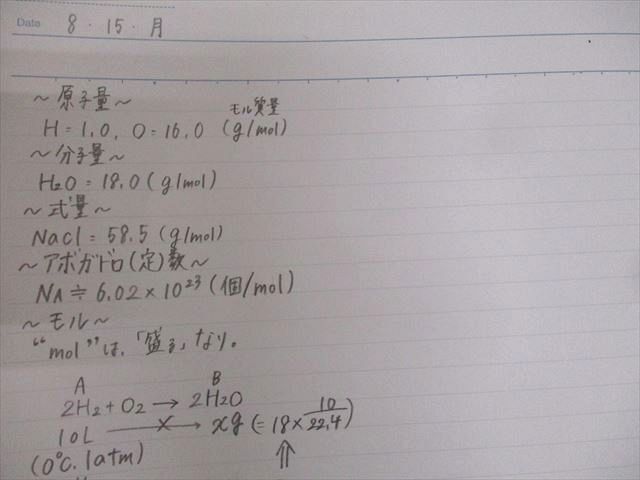 Date 8・15・月
～原子量～
モル質量
H=1.0, O=16.0 (g/mol)
～分子量～
H₂O=18.0 (g/mol)
～式量～
NaCl=58.5 (g/mol)
～アボガドロ(定)数～
NA≒6.02×10²³ (個/mol)
～モル～
"mol"は、「盛る」なり。
A B
2H₂+O₂ → 2H₂O
10L → xg (=18×10/22.4)
(0℃. 1atm)